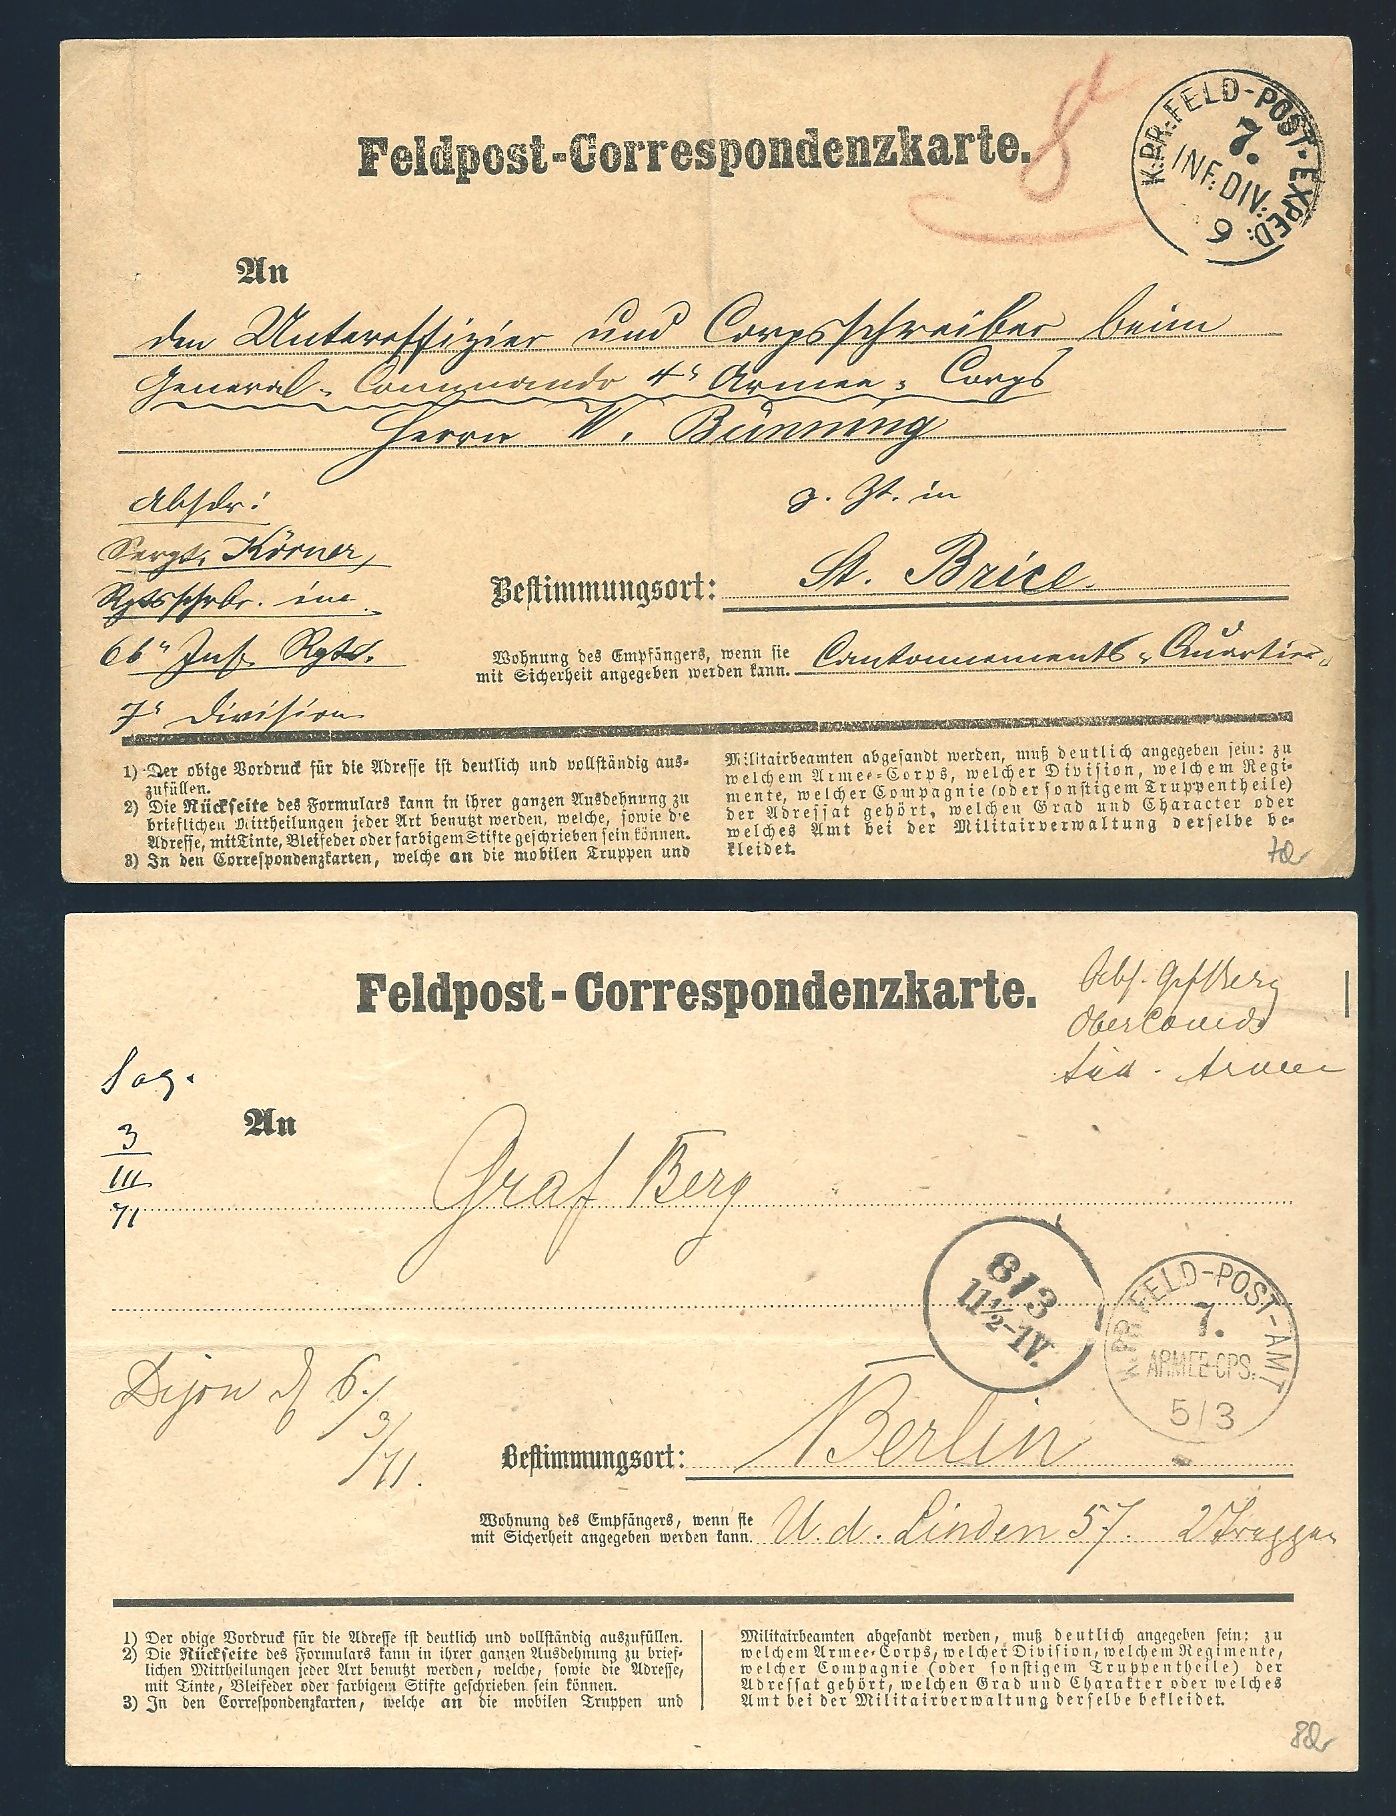 Feldpost-Correspondenzkarte.
8
K.PR.FELD-POST-EXPED:
7.
INF.DIV:
9
An
den Unteroffizier und Corpsschreiber beim
General-Commando 4r Armee-Corps
Herrn W. Bünning
Absdr:
z. Zt. in
Sergt. Körner,
St. Brice
Bestimmungsort:
Rgtsschrbr. im
66n Inf. Rgts.
Wohnung des Empfängers, wenn sie
mit Sicherheit angegeben werden kann.
Cantonnements-Quartier
7r Division
1) Der obige Vordruck für die Adresse ist deutlich und vollständig aus-
zufüllen.
2) Die Rückseite des Formulars kann in ihrer ganzen Ausdehnung zu
brieflichen Mittheilungen jeder Art benutzt werden, welche, sowie die
Adresse, mit Tinte, Bleifeder oder farbigem Stifte geschrieben sein können.
3) In den Correspondenzkarten, welche an die mobilen Truppen und
Militairbeamten abgesandt werden, muß deutlich angegeben sein: zu
welchem Armee-Corps, welcher Division, welchem Regi-
mente, welcher Compagnie (oder sonstigem Truppentheile)
der Adressat gehört, welchen Grad und Character oder
welches Amt bei der Militairverwaltung derselbe be-
kleidet.
Feldpost-Correspondenzkarte.
Abs. Gf Berg
Obercomdo
Süd-Armee
3
III
71
An
Graf Berg
8/3
11½-1V.
K.PR.FELD-POST-AMT
7.
ARMEE-CPS.
5/3
Dijon d 6./3/71.
Berlin
Bestimmungsort:
Wohnung des Empfängers, wenn sie
mit Sicherheit angegeben werden kann.
U. d. Linden 57. 2 Treppen
1) Der obige Vordruck für die Adresse ist deutlich und vollständig auszufüllen.
2) Die Rückseite des Formulars kann in ihrer ganzen Ausdehnung zu brief-
lichen Mittheilungen jeder Art benutzt werden, welche, sowie die Adresse,
mit Tinte, Bleifeder oder farbigem Stifte geschrieben sein können.
3) In den Correspondenzkarten, welche an die mobilen Truppen und
Militairbeamten abgesandt werden, muß deutlich angegeben sein: zu
welchem Armee-Corps, welcher Division, welchem Regimente,
welcher Compagnie (oder sonstigem Truppentheile) der
Adressat gehört, welchen Grad und Charakter oder welches
Amt bei der Militairverwaltung derselbe bekleidet.